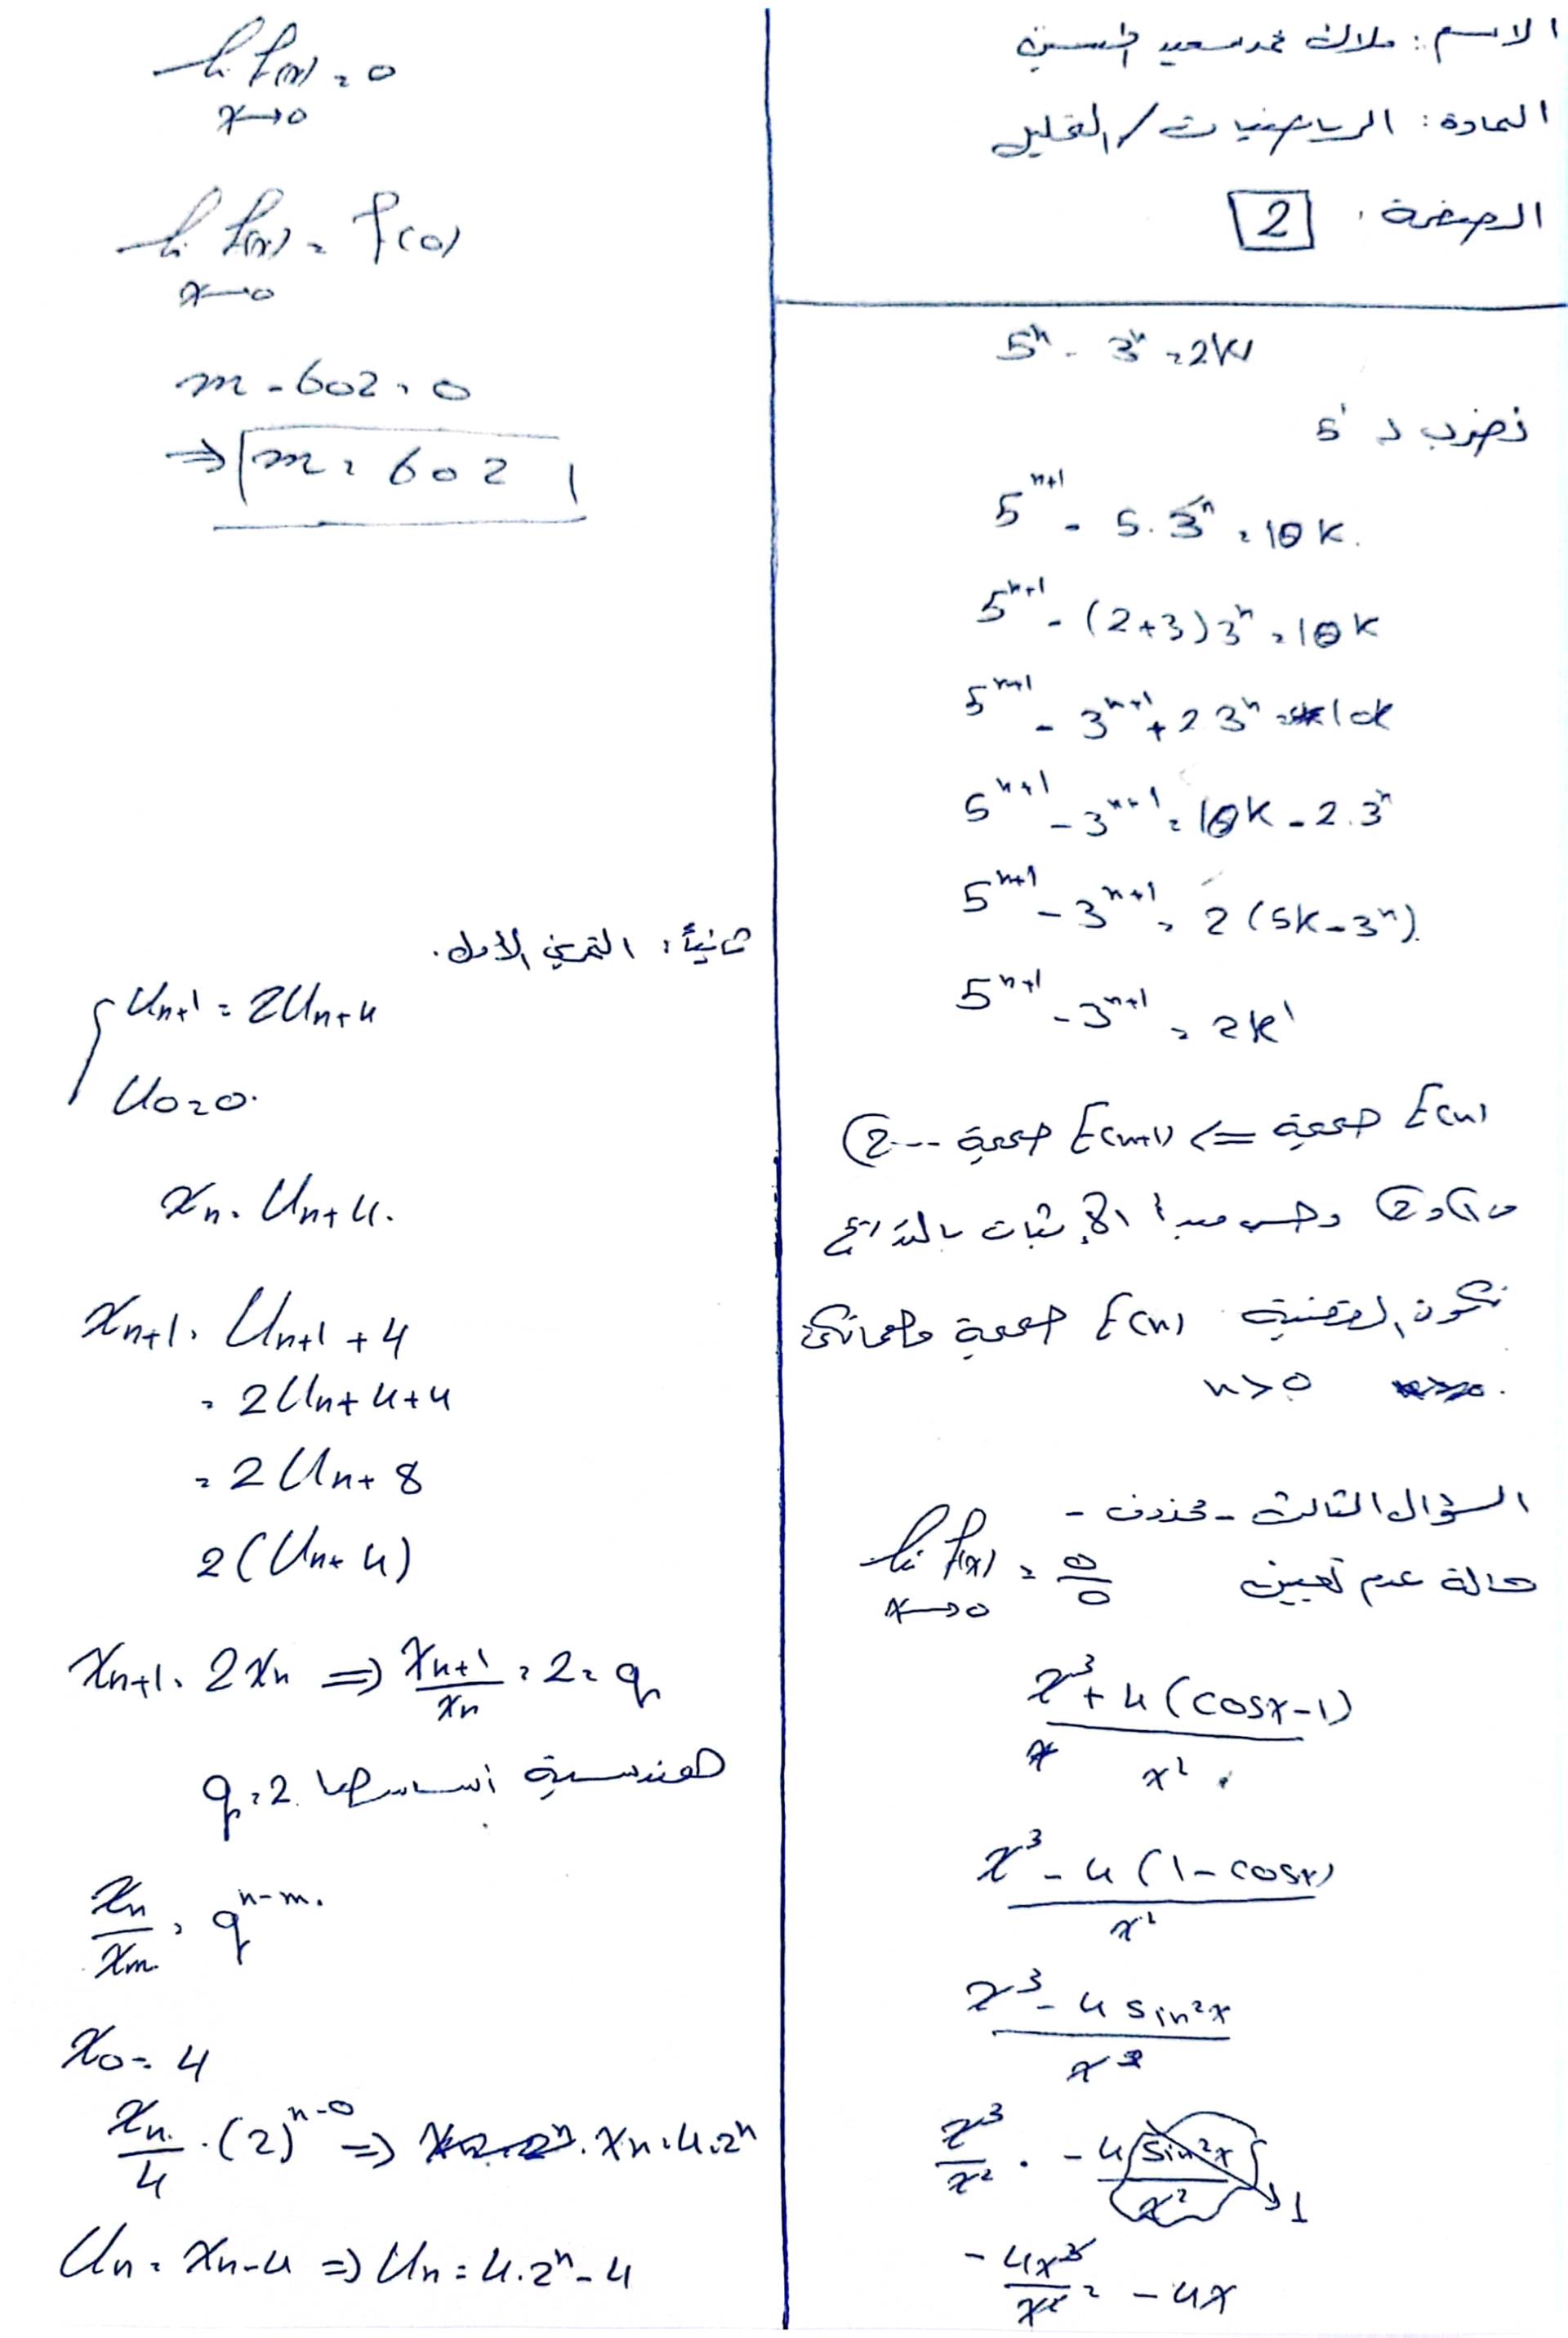 الاسم: ملاك محمد سعيد الحسين
المادة: الرياضيات / التحليل
الصفحة: 2
5ⁿ - 3ⁿ = 2k
نضرب د 5
5ⁿ⁺¹ - 5.3ⁿ = 10k.
5ⁿ⁺¹ - (2+3)3ⁿ = 10k
5ⁿ⁺¹ - 3ⁿ⁺¹ + 2 3ⁿ = 10k
5ⁿ⁺¹ - 3ⁿ⁺¹ = 10k - 2.3ⁿ
5ⁿ⁺¹ - 3ⁿ⁺¹ = 2(5k-3ⁿ).
5ⁿ⁺¹ - 3ⁿ⁺¹ = 2k'
E(n) صحيحة <= E(n+1) صحيحة --- ②
من ① و ② وحسب مبدأ الإثبات بالتدريج
تكون القضية E(n) صحيحة وصمانكن
n>0
السؤال الثالث - محذوف -
lim f(x) = 0/0 حالة عدم تعيين
x→0
x³ + 4(cosx-1)
x²
x³ - 4(1-cosx)
x²
x³ - 4 sin²x
x²
x³/x² . -4 sin²x/x² → 1
-4x³/x² = -4x
lim f(x) = 0
x→0
lim f(x) = f(0)
x→0
m - 602 = 0
⇒ m = 602
ثانياً: التمرين الأول.
Un+1 = 2Un+4
U0=0.
xn = Un+4.
xn+1 = Un+1 + 4
= 2Un+4+4
= 2Un+8
2(Un+4)
xn+1 = 2xn ⇒ xn+1/xn = 2 = q
هندسية أساسها q=2
xn/xm = qⁿ⁻ᵐ.
x0 = 4
xn/4 = (2)ⁿ⁻⁰ ⇒ xn = 4.2ⁿ
Un = xn-4 ⇒ Un = 4.2ⁿ - 4